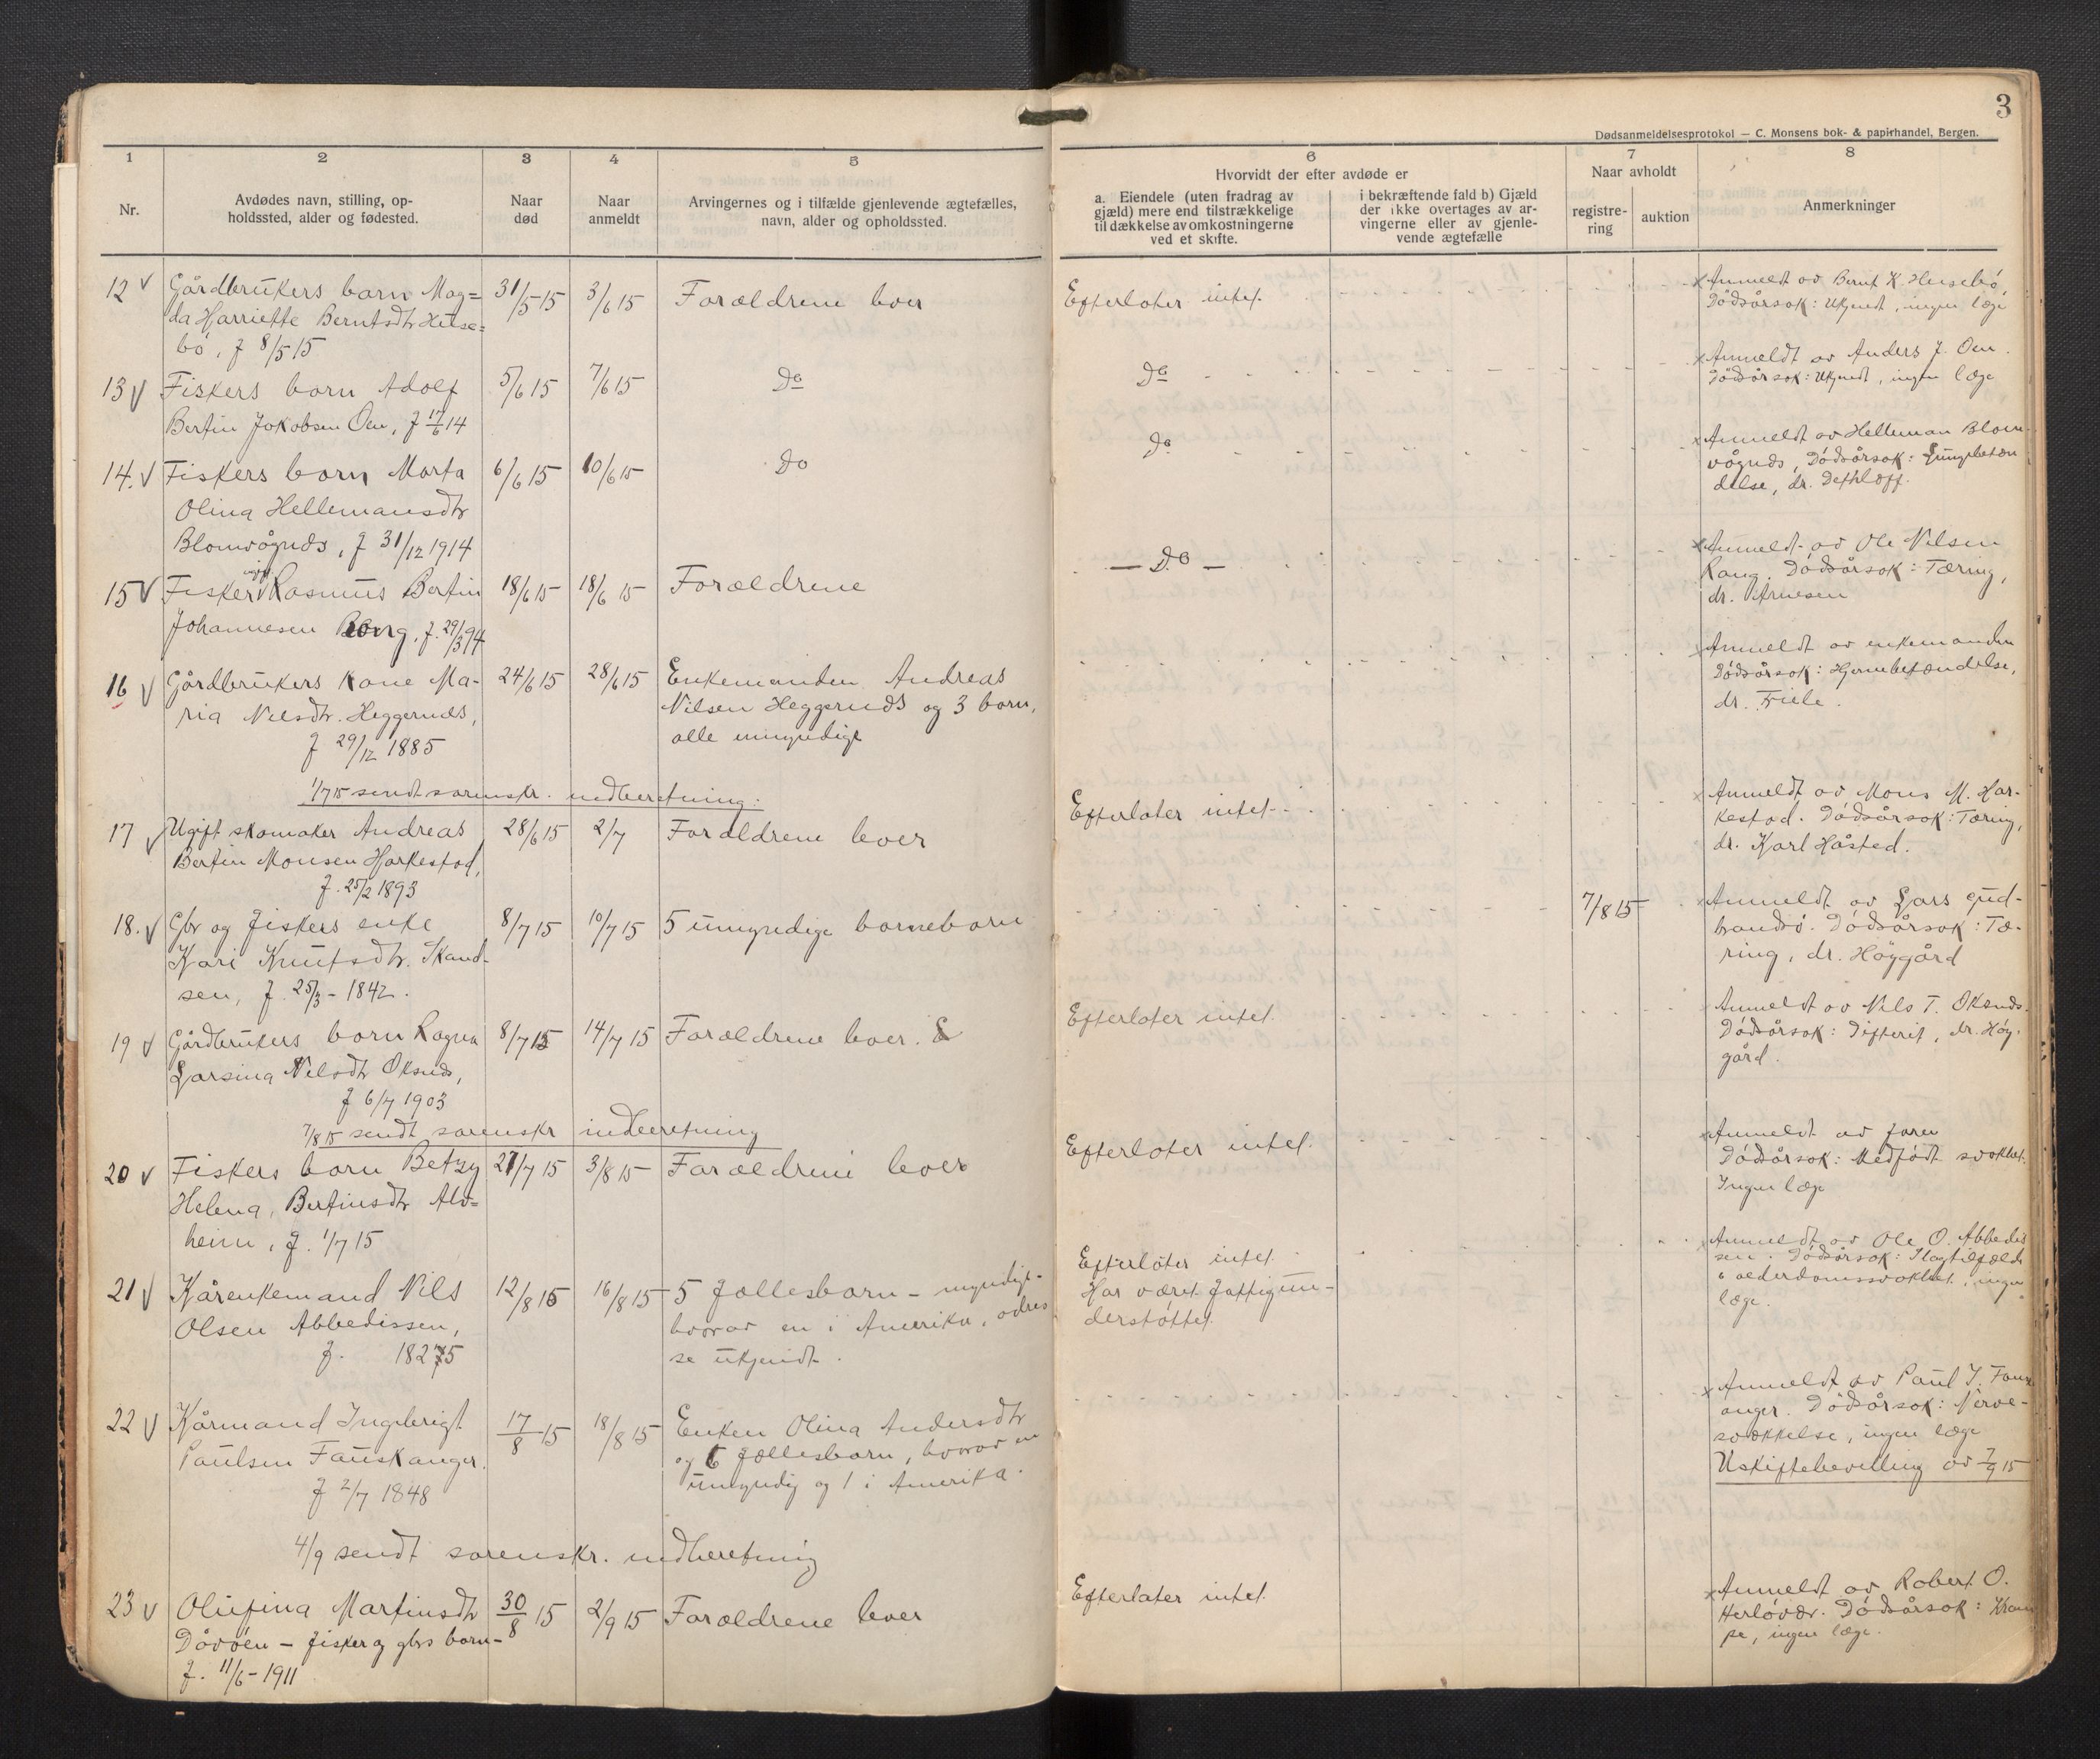 3
Dødsanmeldelsesprotokol — C. Monsens bok- & papirhandel, Bergen.
1 2 3 4 5 6 7 8
Nr.
Avdødes navn, stilling, op-
holdssted, alder og fødested.
Naar
død
Naar
anmeldt
Arvingernes og i tilfælde gjenlevende ægtefælles,
navn, alder og opholdssted.
Hvorvidt der efter avdøde er
a. Eiendele (uten fradrag av
gjæld) mere end tilstrækkelige
til dækkelse av omkostningerne
ved et skifte.
i bekræftende fald b) Gjæld
der ikke overtages av ar-
vingerne eller av gjenle-
vende ægtefælle
Naar avholdt
registre-
ring
auktion
Anmerkninger
12 √ Gårdbrukers barn Mag=
da Harriette Berntsdtr Hetse=
bö, f 8/5 15
31/5 15
3/6 15
Forældrene lever
Efterlater intet.
Anmeldt av Bernt K.
Dödsårsak: Ukjendt, ingen læge
13 √ Fiskers barn Adolf
Bertin Jakobsen Oen, f 17/6 14
5/6 15
7/6 15
Do
Do
Anmeldt av Anders J. Oen.
Dödsårsak: Ukjendt, ingen læge
14. √ Fiskers barn Marta
Olina Hellemansdtr
Blomvågnds, f 31/12 1914
6/6 15
10/6 15
Do
Do
Anmeldt av Helleman Blom-
vågnds, Dödsårsak: Lungebetæn
delse, dr. Dethloff.
15 √ Fisker ugift Rasmus Bertin
Johannesen Rong, f. 29/3 94
18/6 15
18/6 15
Forældrene
— Do —
Anmeldt av Ole Nilsen
Rong. Dödsårsak: Tæring,
dr. Arnesen
16 √ Gårdbrukers kone Ma-
ria Nilsdtr. Heggernds,
f 29/12 1885
24/6 15
28/6 15
Enkemanden Andreas
Nilsen Heggernds og 3 barn,
alle umyndige
Anmeldt av enkemanden
Dödsårsak: Hjernebetændelse,
dr. Friele.
1/7 15 sendt sorenskr. indberetning.
17 √ Ugift skomaker Andreas
Bertin Monsen Harkestad,
f. 25/2 1893
28/6 15
2/7
Forældrene lever
Efterlater intet
Anmeldt av Mons M. Har-
kestad. Dödsårsak: Tæring,
dr. Karl Håsted.
18. √ Gbr og fiskers enke
Kari Knutsdtr. Skand-
sen, f. 25/3 - 1842.
8/7 15
10/7 15
5 umyndige barnebarn
7/8 15
Anmeldt av Lars Gud-
Dödsårsak: Tæ-
ring, dr. Höygård
19 √ Gårdbrukers barn Ragna
Larsina Nilsdtr Oksnds,
f 6/7 1903
8/7 15
14/7 15
Forældrene lever.
Efterlater intet.
Anmeldt av Nils T. Oksnds.
Dödsårsak: Difterit, dr. Höy-
gård.
7/8 15 sendt sorenskr indberetning
20 √ Fiskers barn Betzy
Helena, Bertinsdtr Alv=
heim, f. 1/7 15
27/7 15
3/8 15
Forældrene lever
Efterlater intet.
Anmeldt av faren
Dödsårsak: Medfödt svakhet.
Ingen læge
21 √ Kårenkemand Nils
Olsen Abbedissen,
f. 1825
12/8 15
16/8 15
5 fællesbarn - myndige-
hvorav en i Amerika, adres
se ukjendt.
Efterlater intet.
Har været fattigun-
derstöttet
Anmeldt av Ole O. Abbedis
sen. Dödsårsak: Slagtilfælde
& alderdomssvakhet, ingen
læge.
22 √ Kårmand Ingebrigt
Paulsen Fauskanger.
f 2/7 1848
17/8 15
18/8 15
Enken Olina Andersdtr
og 6 fællesbarn, hvorav en
umyndig og 1 i Amerika.
Anmeldt av Paul I. Fausk
anger. Dödsårsak: Nerve-
svækkelse, ingen læge
Uskiftebevilling av 7/9 15
4/9 sendt sorenskr. indberetning
23 √ Olufina Martinsdtr
Dåvöen - fisker og gbrs barn-
f. 11/6 - 1911
30/8 15
2/9 15
Forældrene lever
Efterlater intet.
Anmeldt av Robert O.
Herlövær. Dödsårsak: Kram
pe, ingen læge.